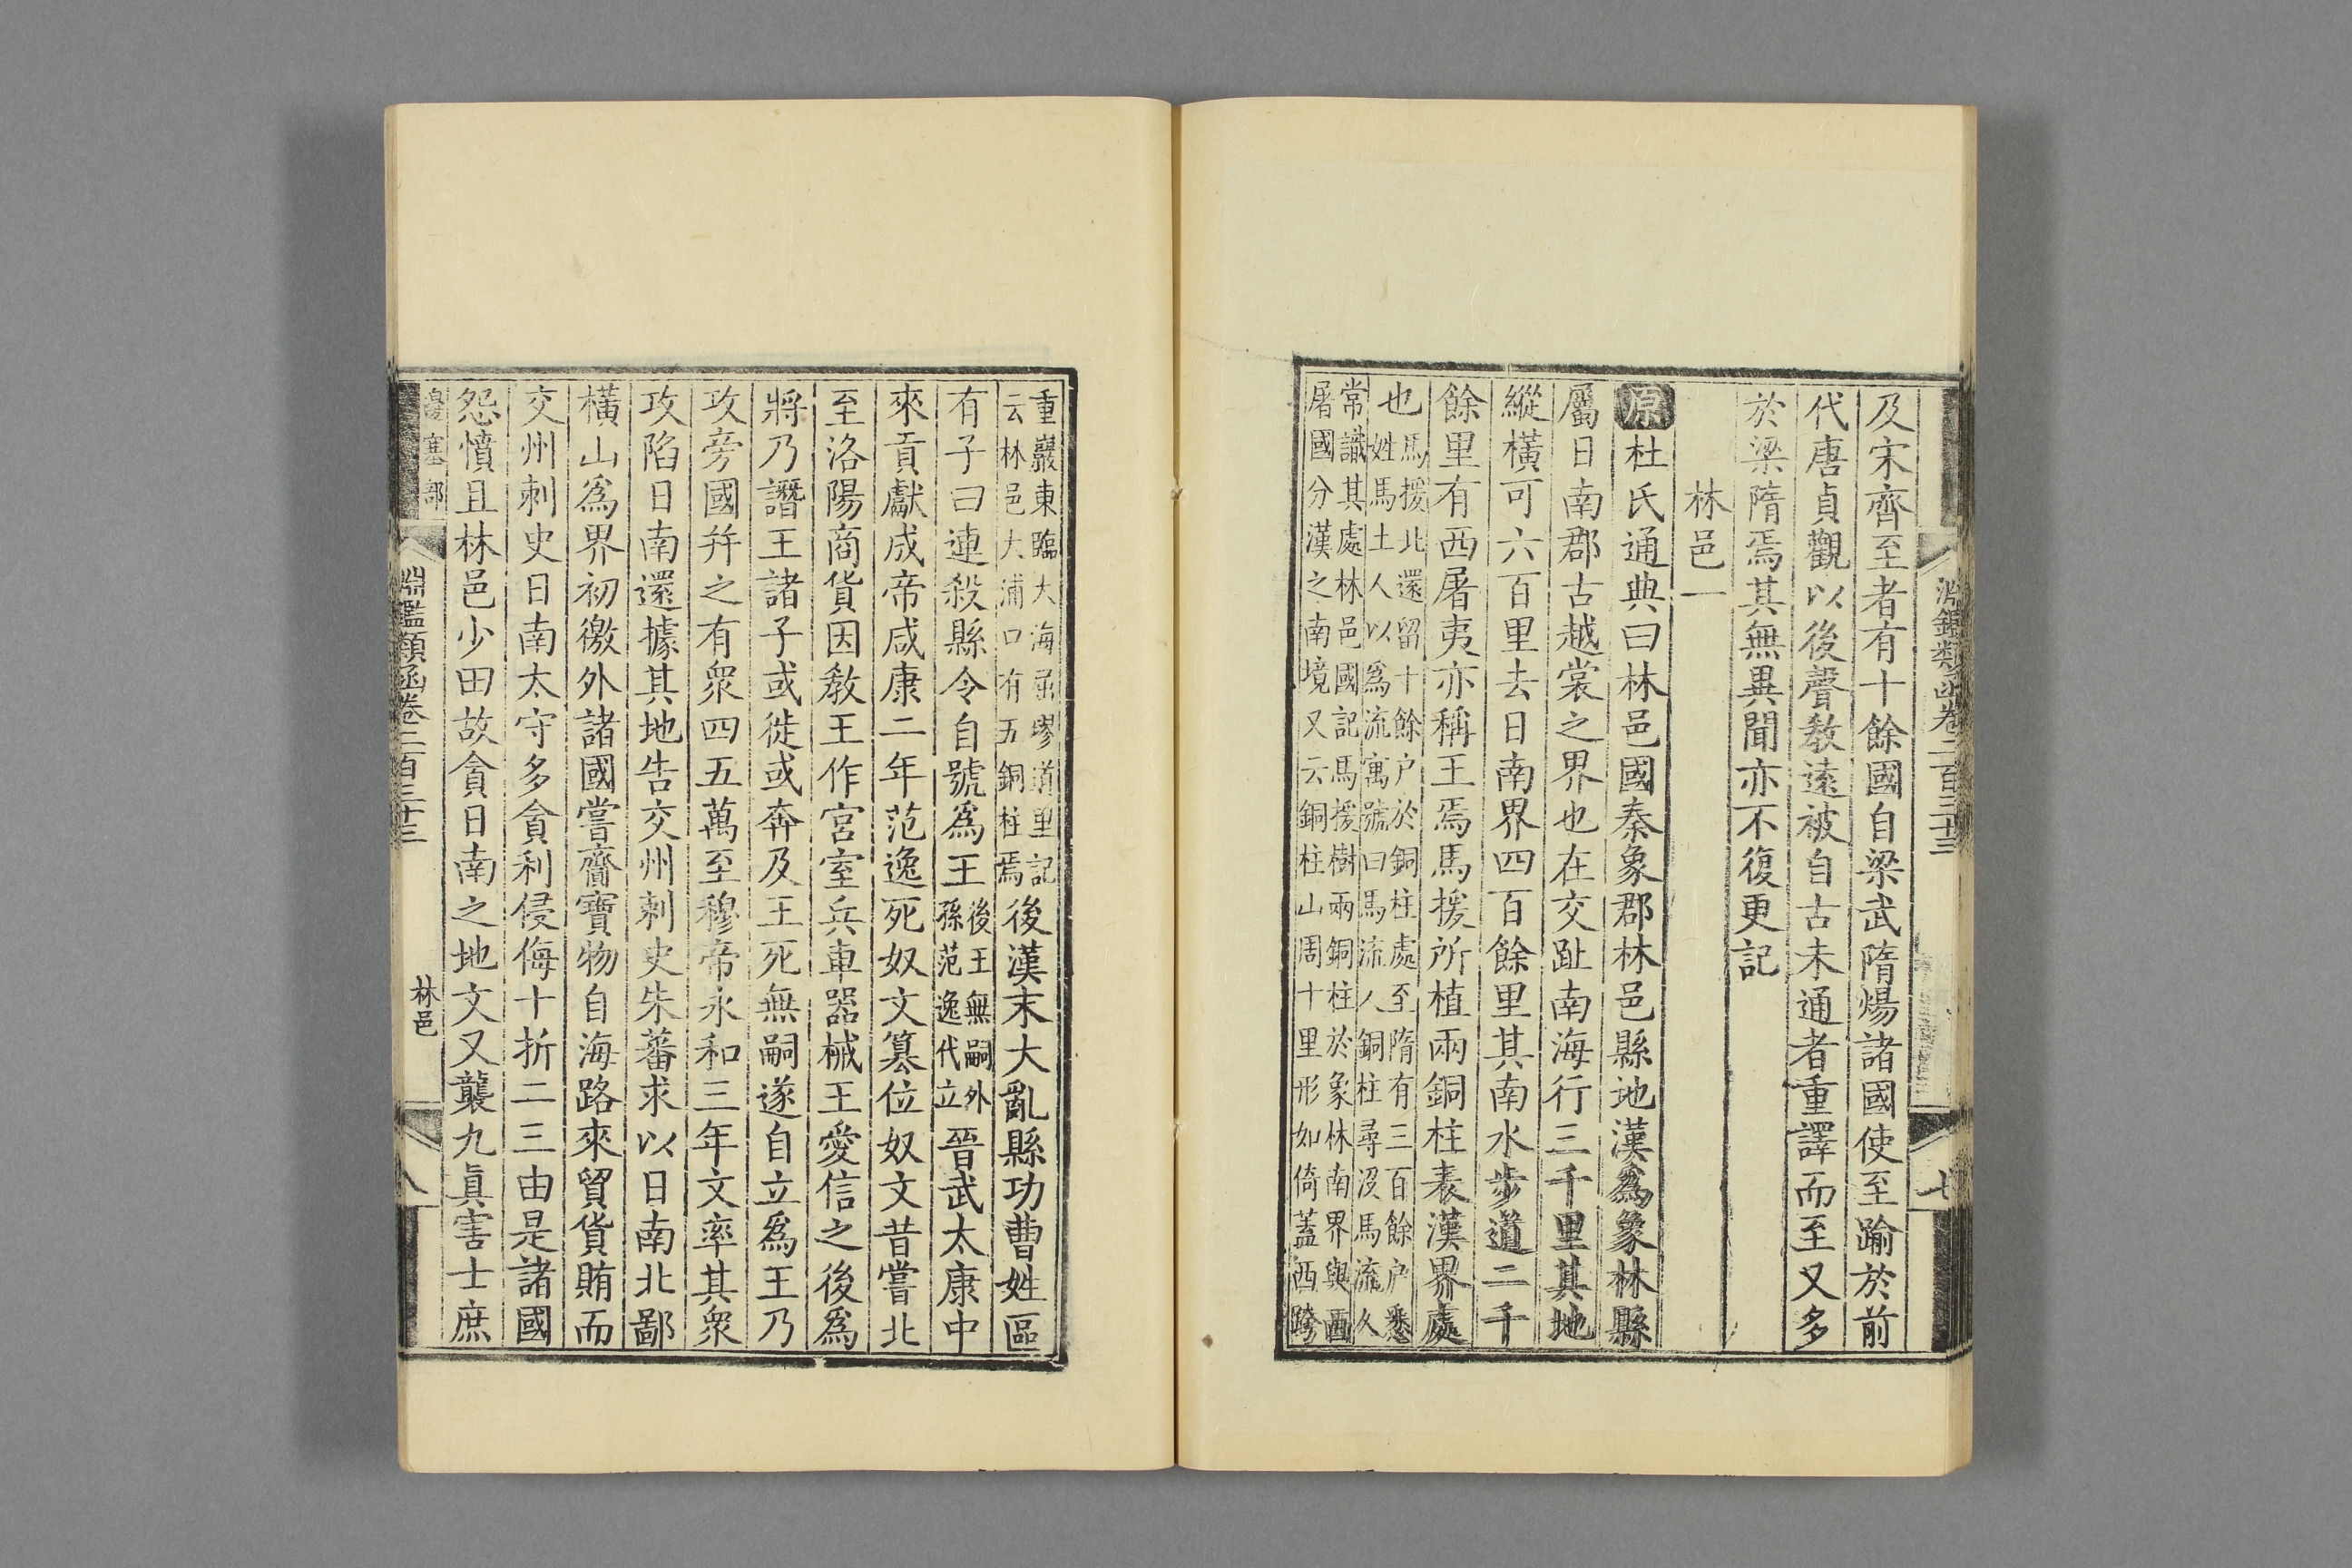 淵鑑類函卷二百三十三
七
及宋齊至者有十餘國自梁武隋煬諸國使至踰於前
代唐貞觀以後聲敎遠被自古未通者重譯而至又多
於梁隋焉其無異聞亦不復更記
林邑一
原杜氏通典曰林邑國秦象郡林邑縣地漢爲象林縣
屬日南郡古越裳之界也在交趾南海行三千里其地
縱橫可六百里去日南界四百餘里其南水步道二千
餘里有西屠夷亦稱王焉馬援所植兩銅柱表漢界處
也馬援北還留十餘户於銅柱處至隋有三百餘户悉
姓馬土人以爲流寓號曰馬流人銅柱尋沒馬流久
常識其處林邑國記馬援樹兩銅柱於象林南界與西
屠國分漢之南境又云銅柱山周十里形如倚蓋西跨
重巖東臨大海屈璆道里記
云林邑大浦口有五銅柱焉後漢末大亂縣功曹姓區
有子曰連殺縣令自號爲王後王無嗣外
孫范逸代立晉武太康中
來貢獻成帝咸康二年范逸死奴文篡位奴文昔嘗北
至洛陽商貨因敎王作宮室兵車器械王愛信之後爲
將乃譖王諸子或徙或奔及王死無嗣遂自立爲王乃
攻旁國幷之有衆四五萬至穆帝永和三年文率其衆
攻陷日南還據其地告交州刺史朱蕃求以日南北鄙
橫山爲界初徼外諸國嘗齎寶物自海路來貿貨賄而
交州刺史日南太守多貪利侵侮十折二三由是諸國
怨憤且林邑少田故貪日南之地文又襲九眞害士庶
邊塞部
淵鑑類函卷二百三十三
林邑
八